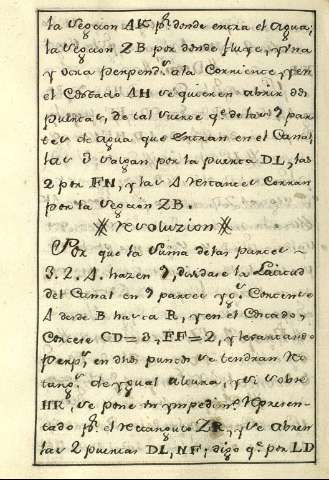 la Seccion AK pr. donde entra el agua;
la Seccion ZB por donde fluye, y una
y otra Perpendr. a la Corriente, y en
el Costado AH se quieren abrir dos
puertas, de tal suerte qe. de las 9 par
tes de agua que entran en el Canal
las 3 salgan por la puerta DL, las
2 por FN, y las 4 restantes corran
por la Seccion ZB.
Revoluzion
Por que la suma de las partes
3. 2. 4. hazen 9, dividase la Latitud
del Canal en 9 partes y
4 desde B hasta R, y en el Costado,
CD=3, EF=2, y levantando
Perpr. en dhos puntos se tendran Re
tang. de ygual altura, y si sobre
HR, se pone un ympedimto. Represen-
tado pr. el Rectangulo ZR, y se abren
las 2 puertas DL, NF; digo qe. por LD